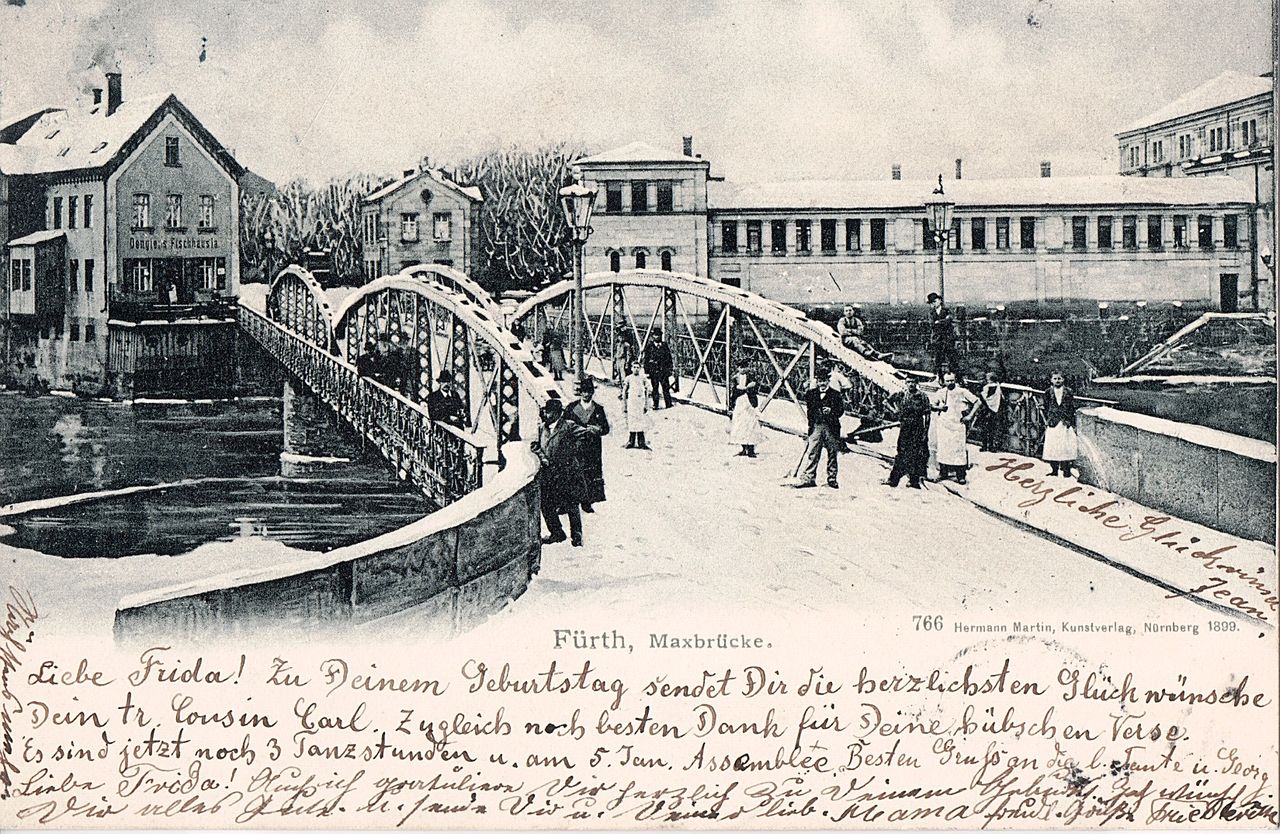 Dengler's Fischhaus
Herzliche Glückwünsche
Jean
766 Hermann Martin, Kunstverlag, Nürnberg 1899.
Fürth, Maxbrücke.
Liebe Frida! Zu Deinem Geburtstag sendet Dir die herzlichsten Glückwünsche
Dein tr. Cousin Carl. Zugleich noch besten Dank für Deine hübschen Verse.
Es sind jetzt noch 3 Tanzstunden u. am 5. Jan. Assemblée. Besten Gruß an die l. Tante u. Georg.
Liebe Frida! Auch ich gratuliere Dir herzlich zu Deinem Geburtstag wünsche
Dir alles Gute u. sende Dir u. Deiner lieb. Mama fredl. Grüße